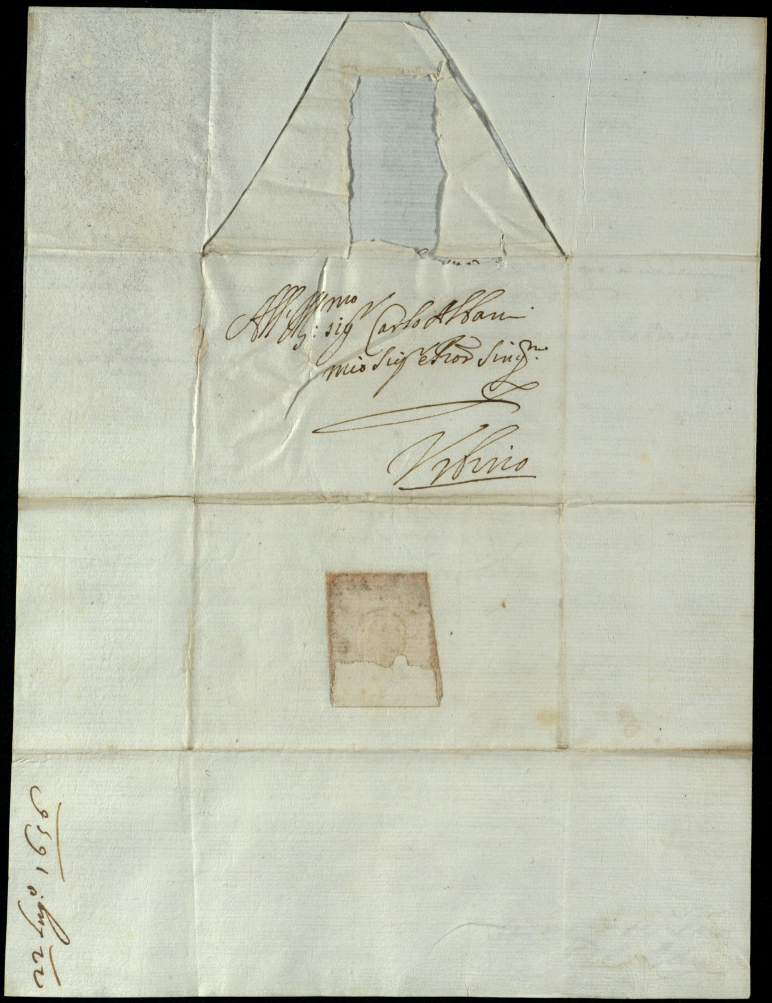 All' Ill:mo sig.r Carlo Albani
mio Sig.r e Pron Sing.mo
Urbino
1659